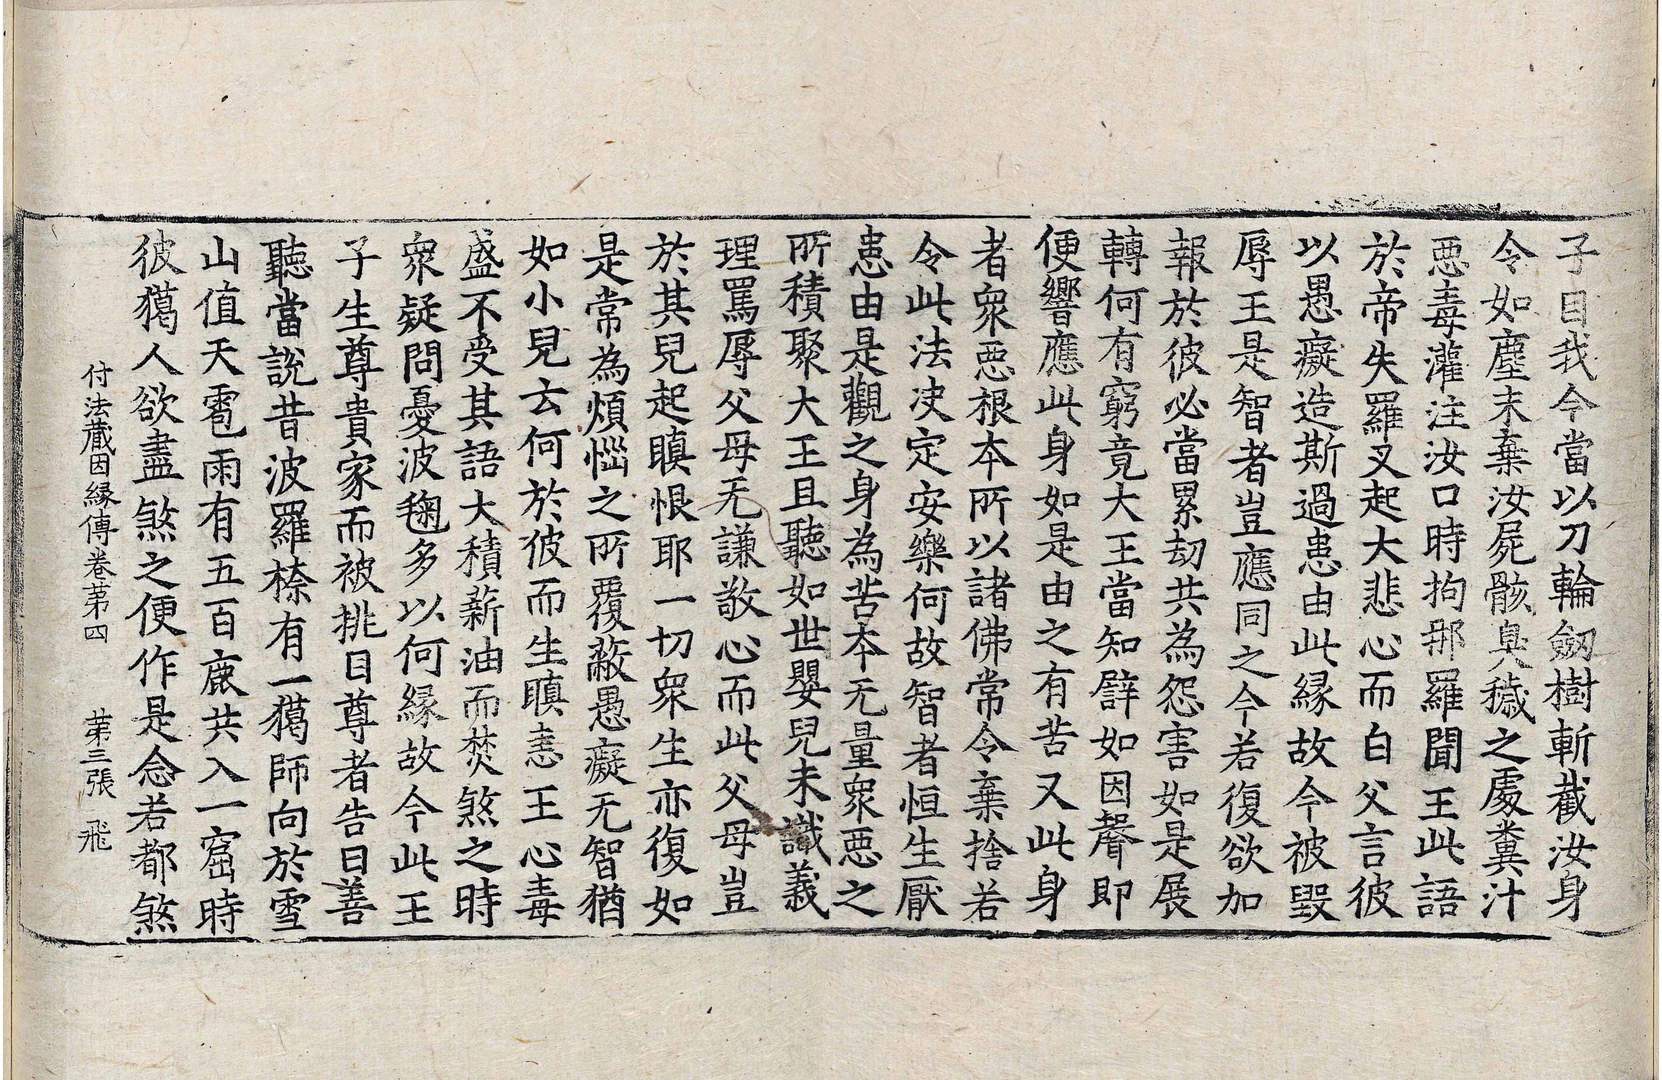 子目我今當以刀輪劒樹斬截汝身
令如塵末棄汝屍骸臭穢之處糞汁
惡毒灌注汝口時拘那羅聞王此語
於帝失羅叉起大悲心而白父言彼
以愚癡造斯過患由此緣故今被毀
辱王是智者豈應同之今若復欲加
報於彼必當累劫共為怨害如是展
轉何有窮竟大王當知譬如因聲即
便響應此身如是由之有苦又此身
者衆惡根本所以諸佛常令棄捨若
令此法决定安樂何故智者恒生厭
患由是觀之身為苦本无量衆惡之
所積聚大王且聽如世嬰兒未識義
理罵辱父母无謙敬心而此父母豈
於其兒起瞋恨耶一切衆生亦復如
是常為煩惱之所覆蔽愚癡无智猶
如小兒云何於彼而生瞋恚王心毒
盛不受其語大積薪油而焚煞之時
衆疑問憂波毱多以何緣故今此王
子生尊貴家而被挑目尊者告曰善
聽當說昔波羅㮈有一獦師向於雪
山值天雹雨有五百鹿共入一窟時
彼獦人欲盡煞之便作是念若都煞
付法藏因緣傳卷苐四 苐三張 飛